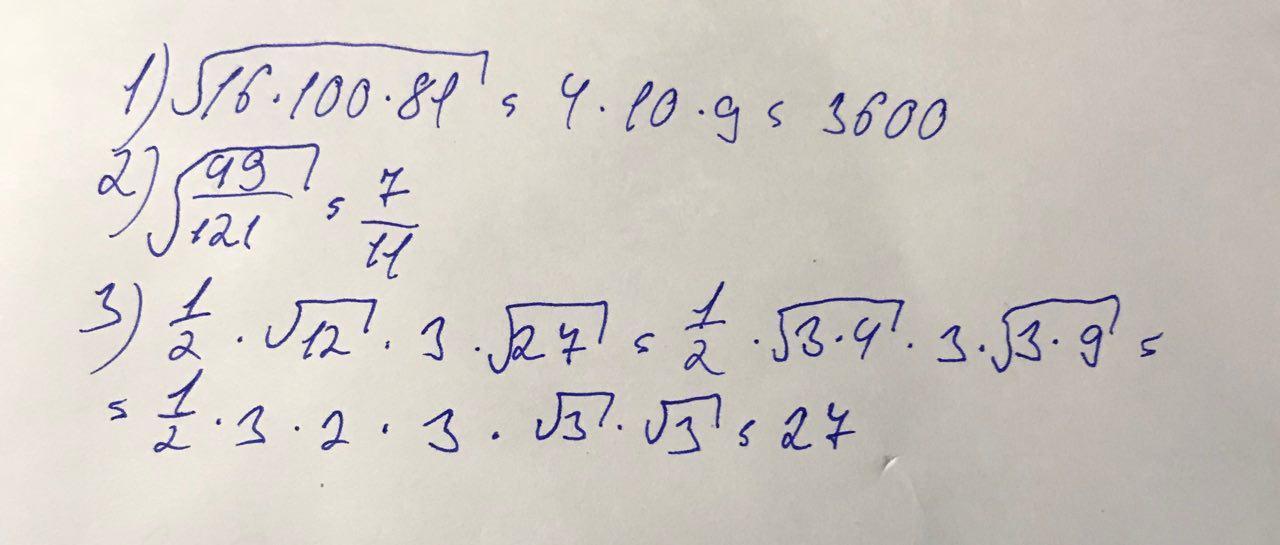 1) √(16·100·81) = 4·10·9 = 3600
2) √(49/121) = 7/11
3) 1/2 · √12 · 3 · √27 = 1/2 · √(3·4) · 3 · √(3·9) =
= 1/2 · 3 · 2 · 3 · √3 · √3 = 27